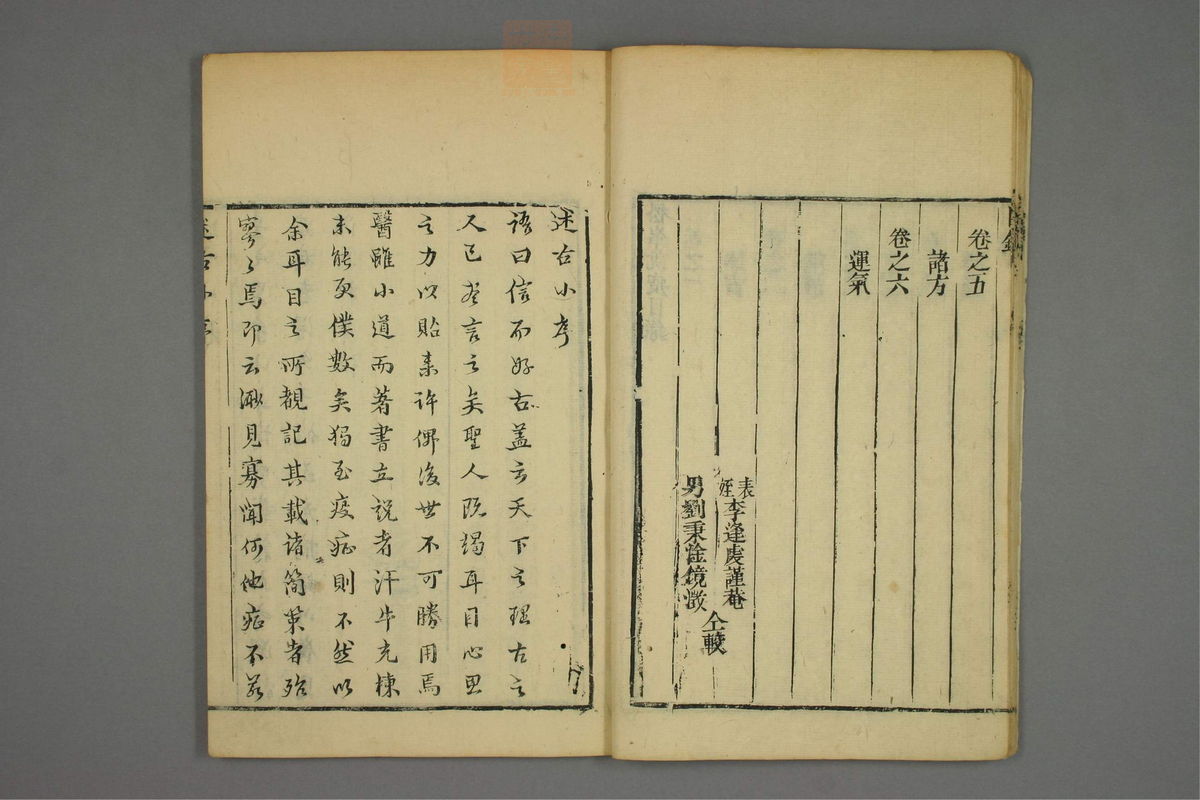 卷之五
諸方
卷之六
運氣
表姪李逢度謹菴
男劉秉淦鏡澂
仝較
述古小序
語曰信而好古蓋言天下之理古之
人已盡言之矣聖人既竭耳目心思
之力以貽來許俾後世不可勝用焉
醫雖小道而著書立說者汗牛充棟
未能更僕數矣獨至疫症則不然以
余耳目之所覩記其載諸簡策者殆
寥寥焉即云淺見寡聞何他症不若